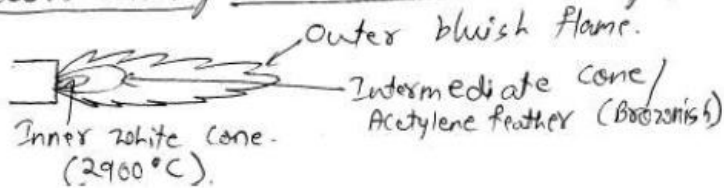 Outer bluish flame.
Intermediate cone/
Acetylene feather (Brownish)
Inner white Cone.
(2900°C).